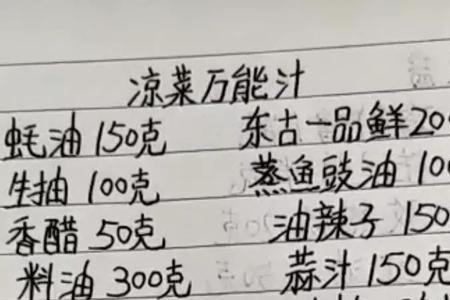 凉菜万能汁
蚝油 150克 东古一品鲜20
生抽 100克 蒸鱼豉油 10
香醋 50克 油辣子 150
料油 300克 蒜汁 150克